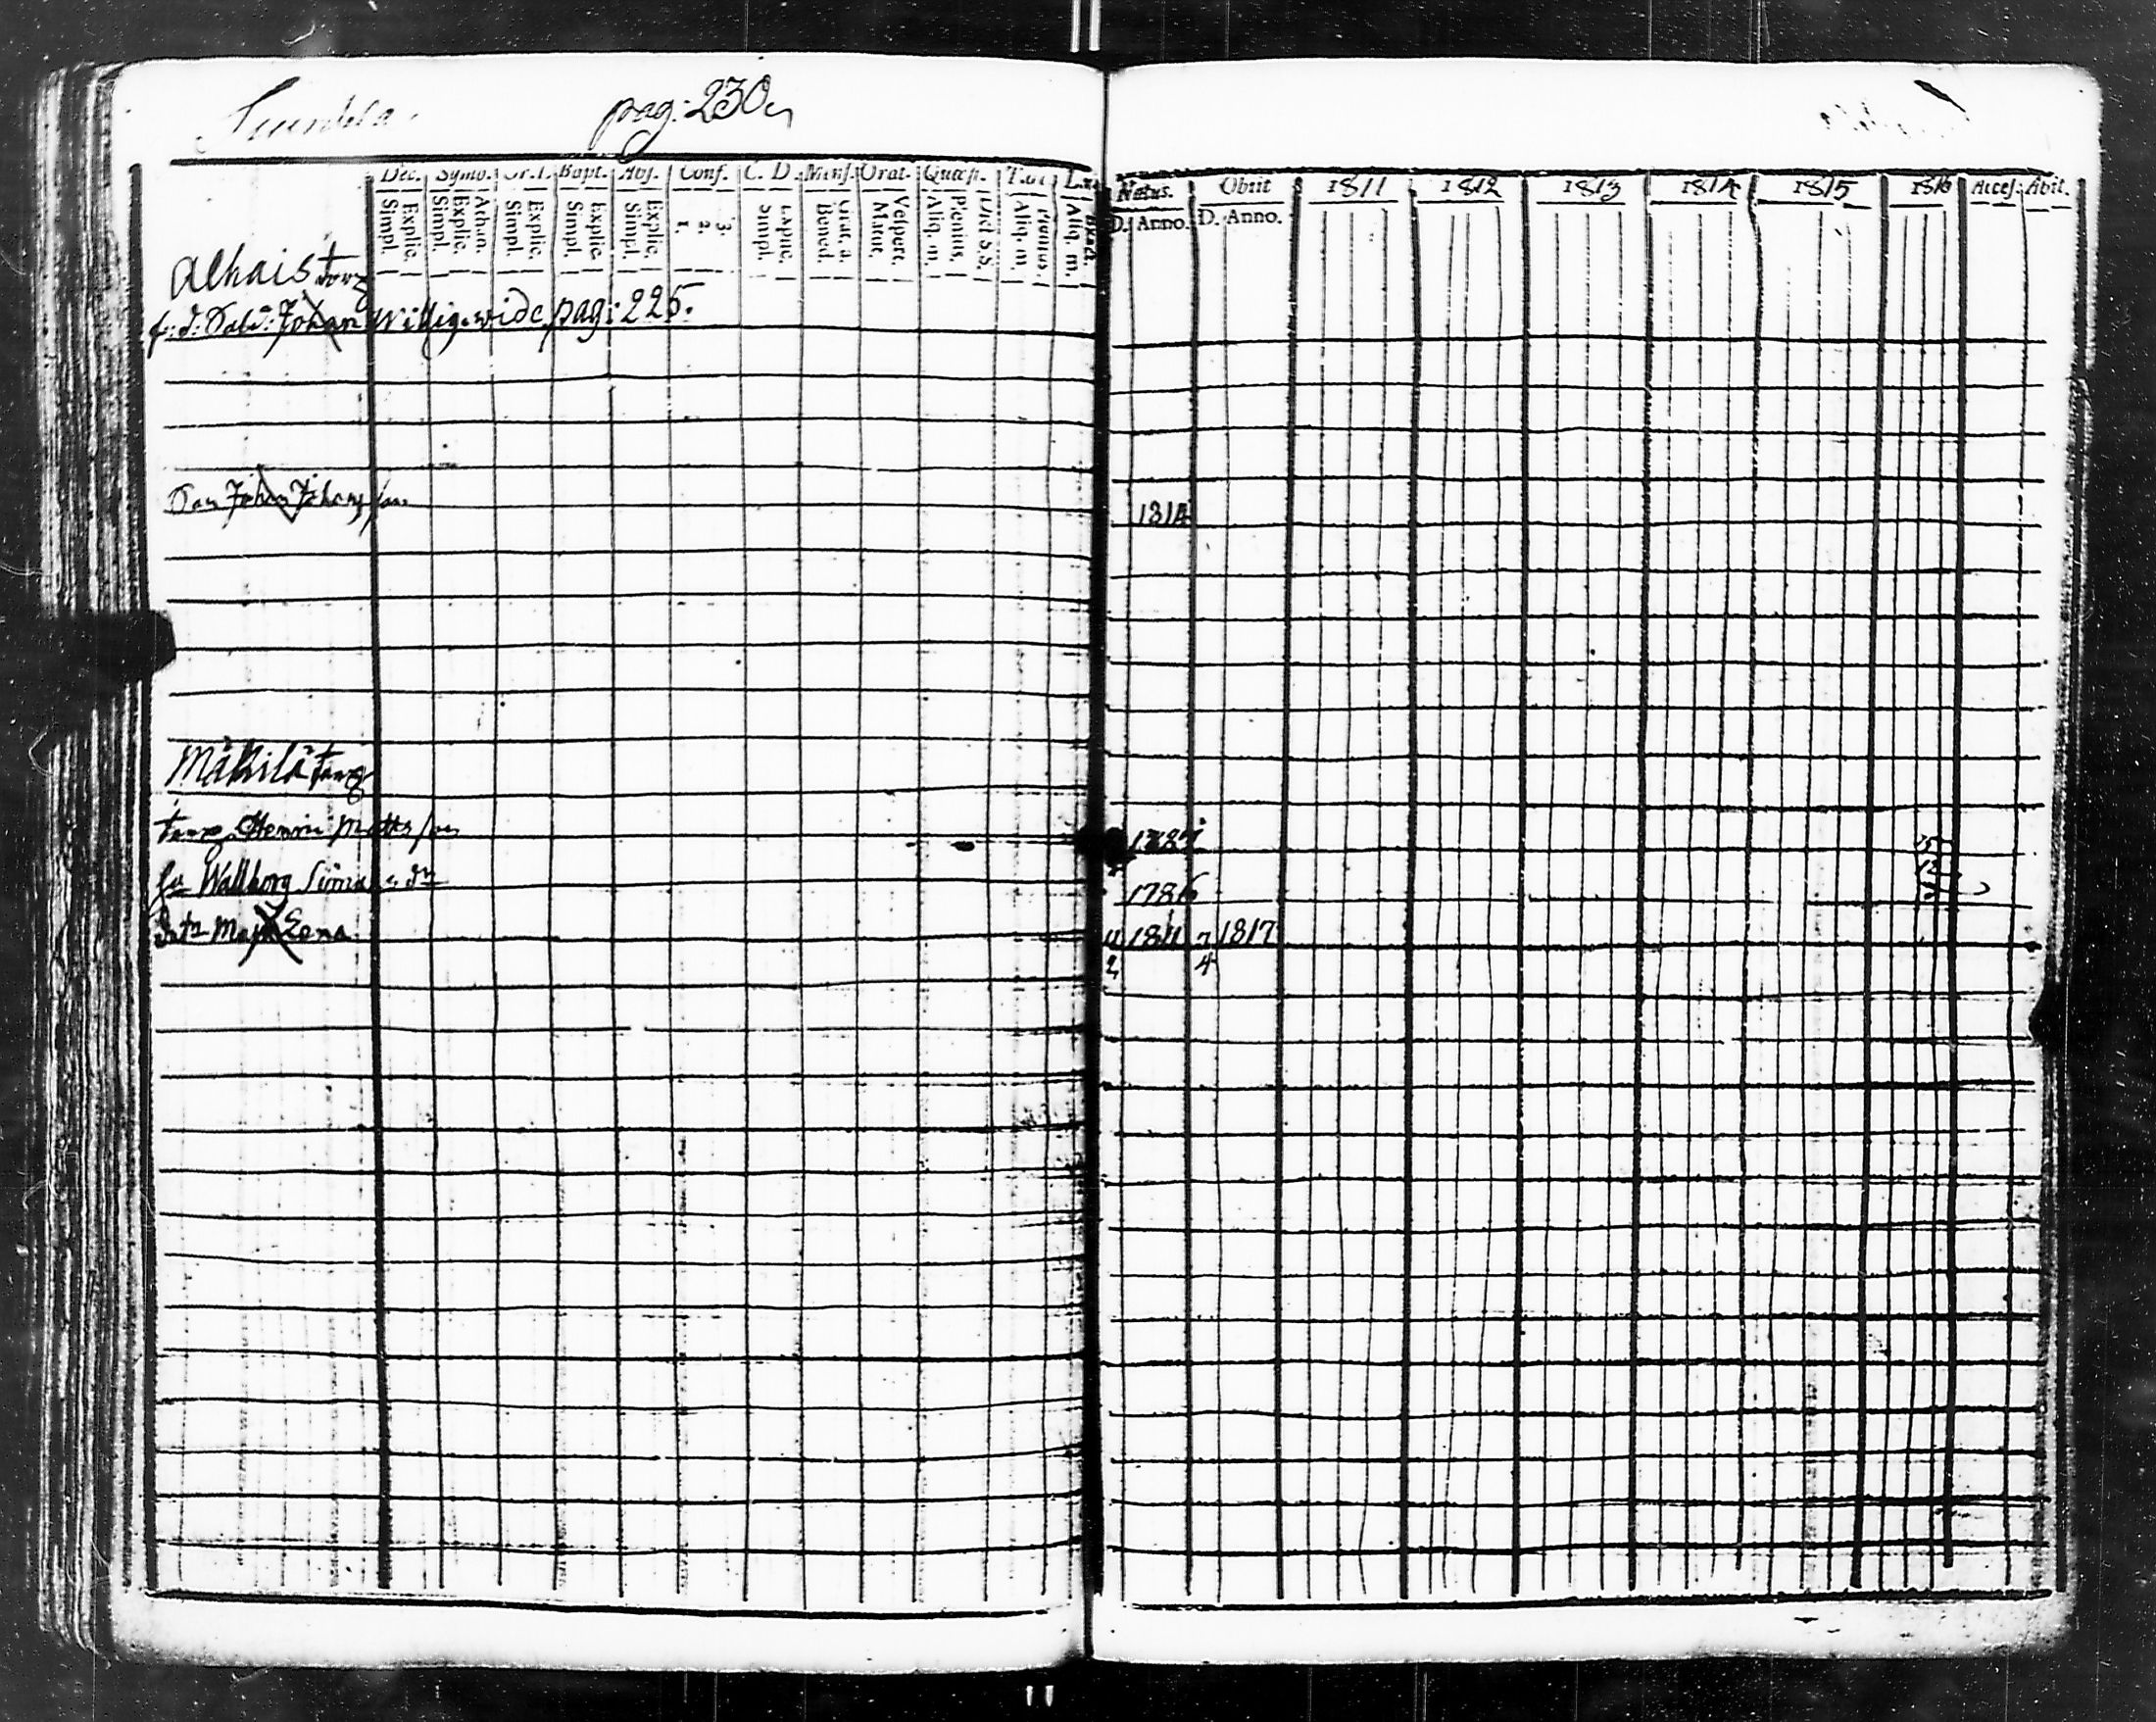 pag: 230
Dec. Symb. Or. D. Bapt. Abs. Conf. C. D. Mens. Orat. Quæst.
Simpl. Explic. Simpl. Explic. Athan. Simpl. Explic. Simpl. Explic. Simpl. Explic. 1. 2. 3. Simpl. Explic. Bened. Grat. a. Matut. Vespert. Aliq. m. Plenius. Dict. S. S. Aliq. m. Plenius. Aliq. m. Exact.
Natus. Obiit 1811 1812 1813 1814 1815 1816 Acces. Abit.
D. Anno. D. Anno.
Alhais torp
f: d: Sold: Johan Willig. wide pag: 225.
Son Johan Johansson 1814
Mäkilä torp
torp. Henric Matts son
hu Wallborg Simons dr 1786
dotr Maja Lena 11/2 1811 7/4 1817